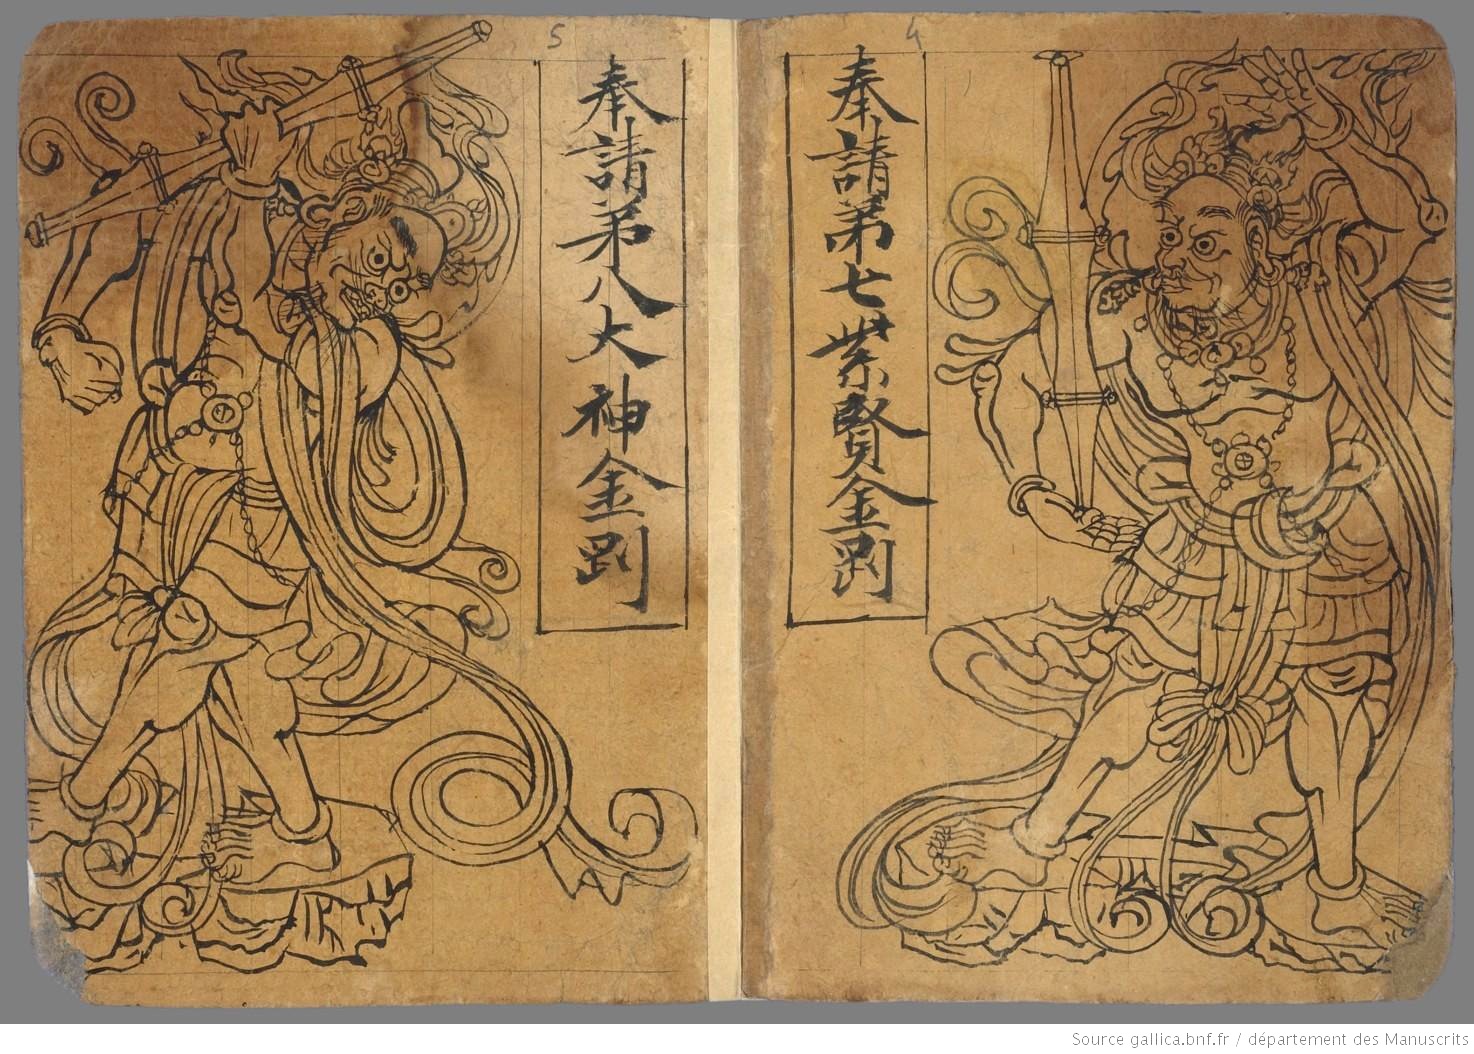 4
奉請第七紫賢金剛
5
奉請弟八大神金剛
Source gallica.bnf.fr / département des Manuscrits